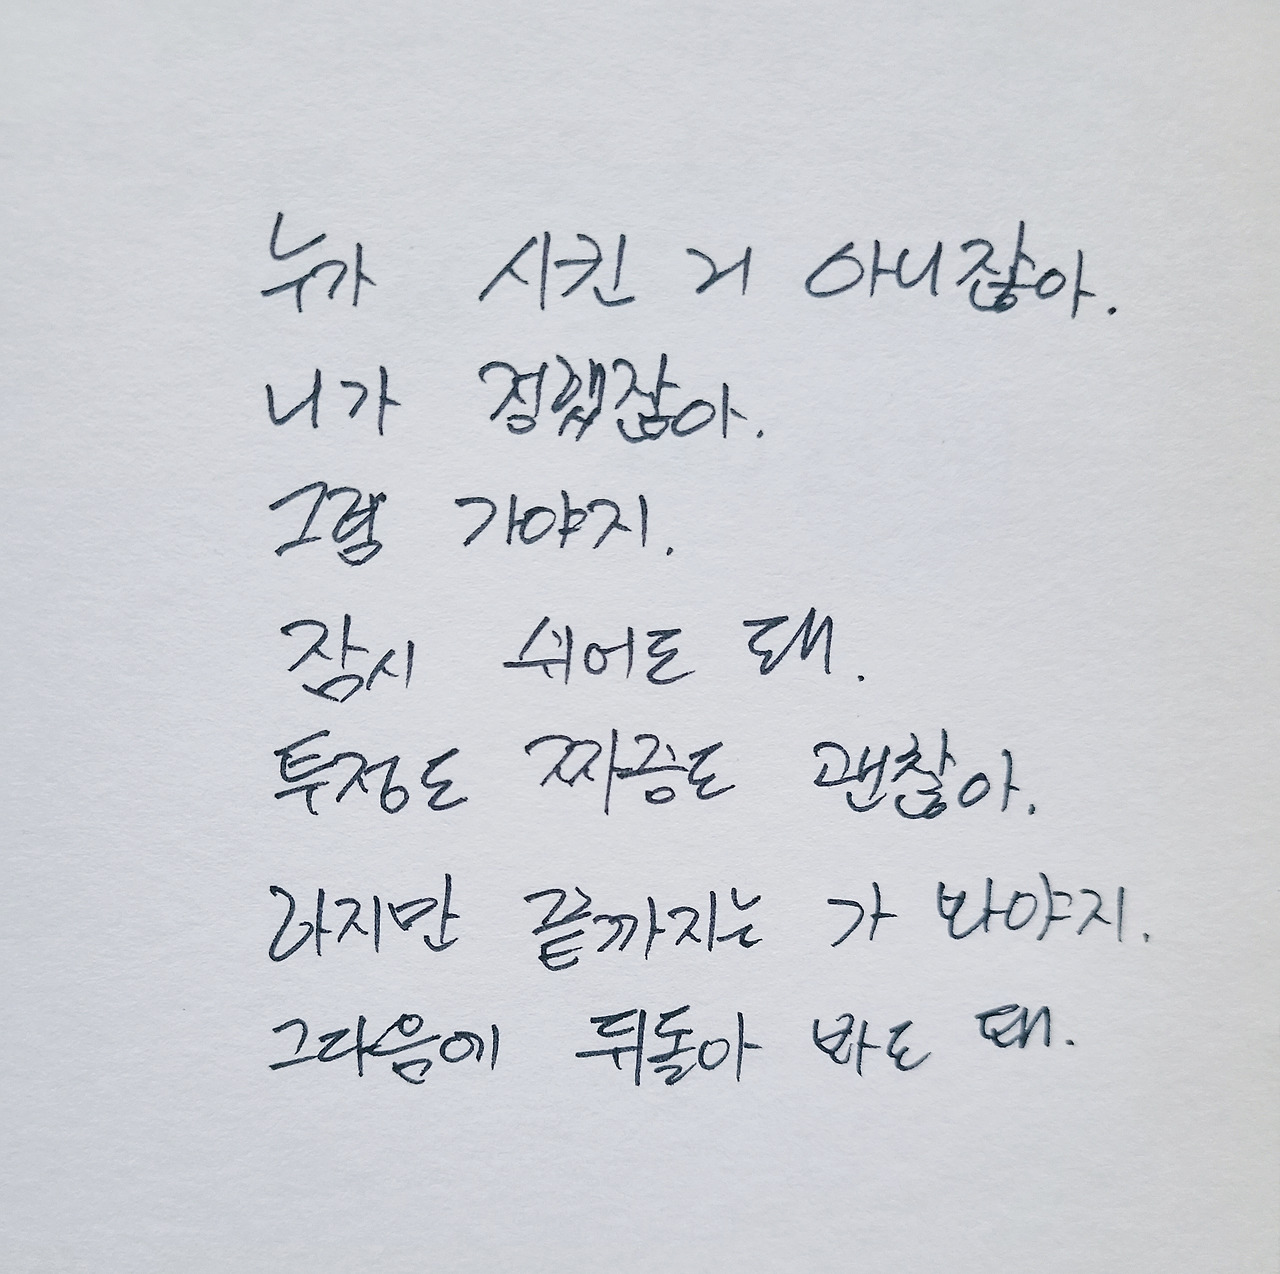 누가 시킨 거 아니잖아.
니가 정했잖아.
그럼 가야지.
잠시 쉬어도 돼.
투정도 짜증도 괜찮아.
하지만 끝까지는 가 봐야지.
그다음에 뒤돌아 봐도 돼.